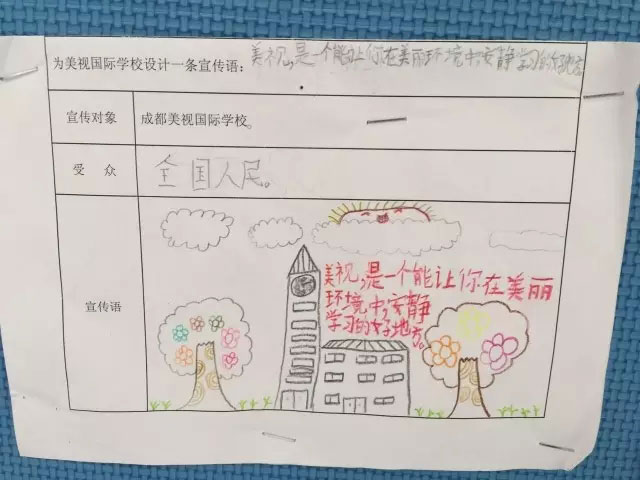 为美视国际学校设计一条宣传语：美视，是一个能让你在美丽环境中，安静学习的好地方
宣传对象 成都美视国际学校。
受 众 全国人民。
宣传语
美视，是一个能让你在美丽
环境中，安静
学习的好地方。